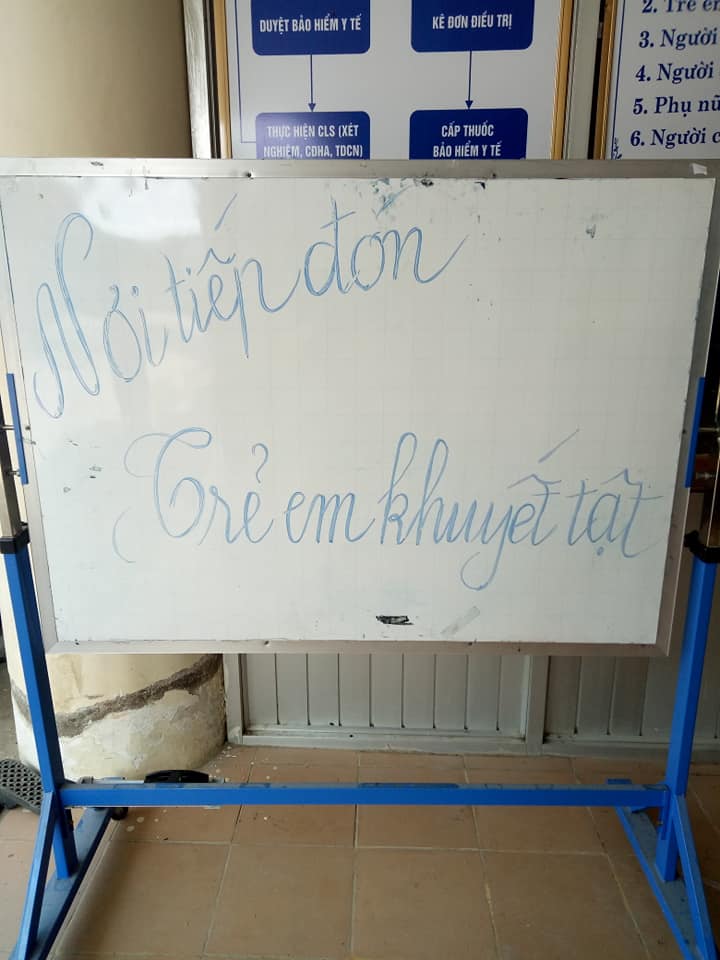 DUYỆT BẢO HIỂM Y TẾ
KÊ ĐƠN ĐIỀU TRỊ
THỰC HIỆN CLS (XÉT
NGHIỆM, CĐHA, TDCN)
CẤP THUỐC
BẢO HIỂM Y TẾ
2. Trẻ em
3. Người
4. Người
5. Phụ nữ
6. Người
Nơi tiếp đón
Trẻ em khuyết tật